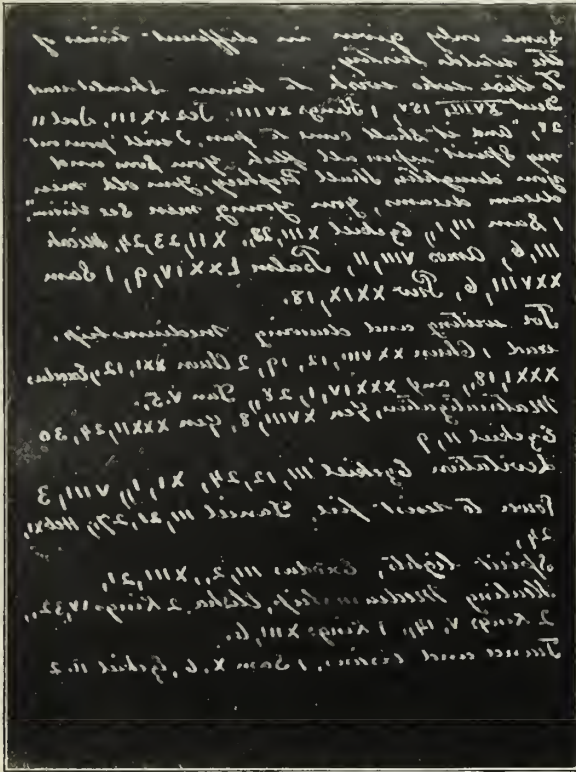 same only given in different times of
the worlds history,
To those who seek to know
Deut XVIII, 15, 1 Kings XVIII. Jer XXIII, Joel 11
28, "and it shall come to pass, I will pour out
my Spirit upon all flesh, your sons and
your daughters shall Prophesy, your old men
dream dreams, your young men see visions"
1 Sam 111, 1, Ezekiel XIII, 23, XII, 23, 24, Micah
111, 6, Amos VIII, 11, Psalm LXXIV, 9, 1 Sam
XXVIII, 6, Prov XXIX, 18.
For writing and drawing Mediumship.
read 1 Chron XXVIII, 12, 19, 2 Chron XXI, 12, Exodus,
XXXI, 18, and XXXIV, 1, 28, Dan V. 5.
Materialization, Gen XVIII, 8, Gen XXXII, 24, 30
Ezekiel 11, 9
Levitation Ezekiel 111, 12, 24, XI, 1, VIII, 3
Power to resist fire, Daniel 111, 21, 27, Heb XI,
24,
Spirit lights, Exodus 111, 2, XIII, 21,
Healing Mediumship, Elisha 2 Kings IV 32,
2 Kings V. 14, 1 Kings XIII, 6.
Trance and vision, 1 Sam X. 6, Ezekiel 11. 2